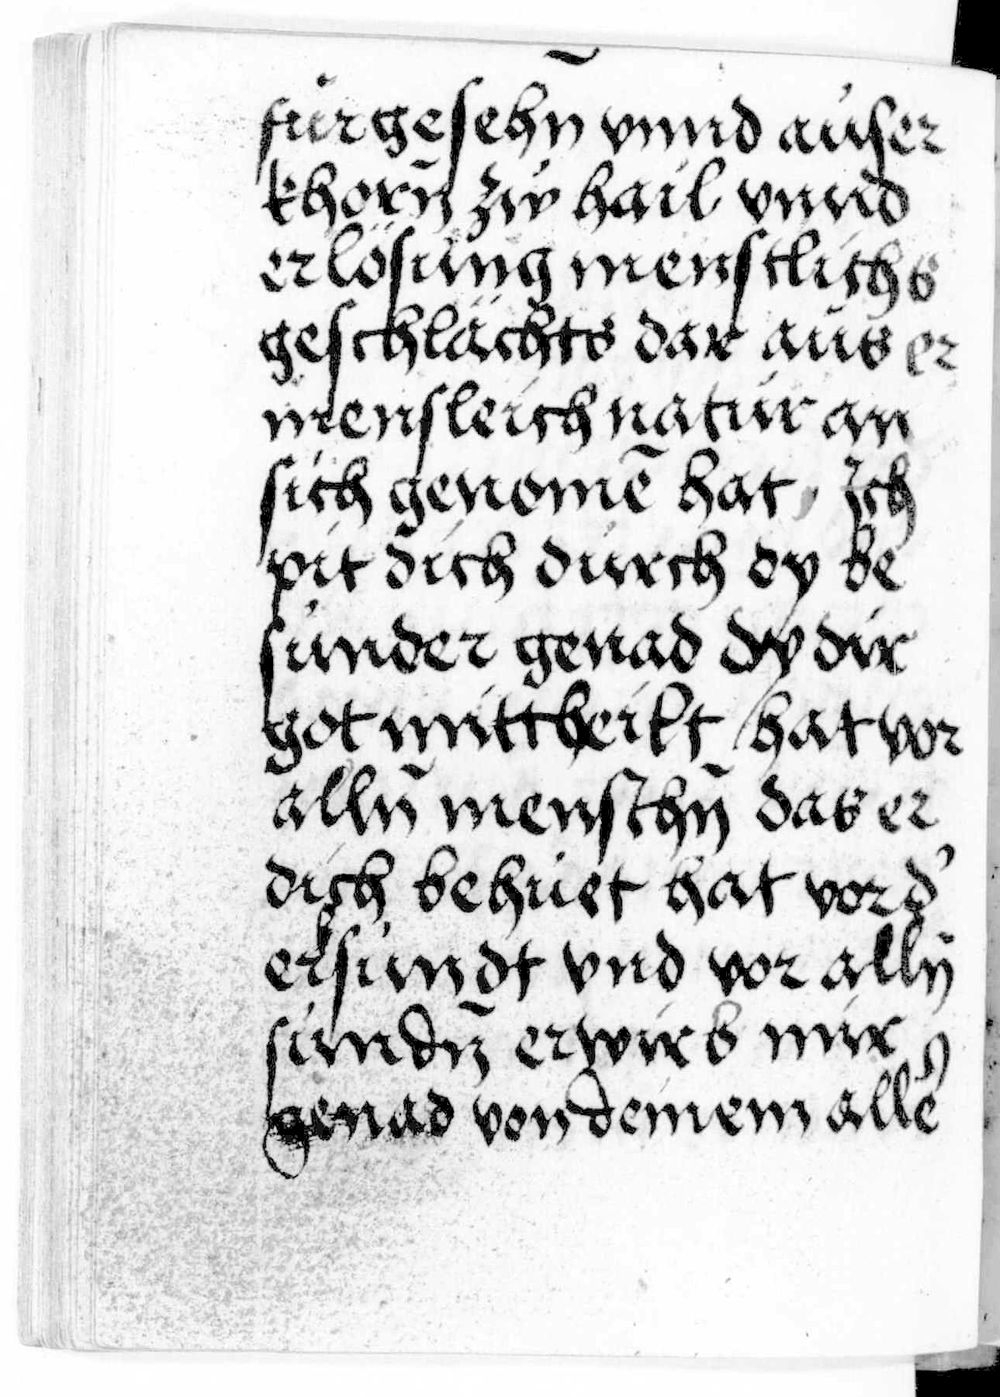 fürgesehn̄ vnnd aúser
khorn̄ zw hail vnnd
erlösúng menstlichs
geschlächts dar aús er
mensleich natúr an
sich genomē hat, Ich
pit dich dúrch dy be
súnder genad dy dir
got mittheilt hat vor
alln̄ menschn̄ das er
dich behúet hat vor d'
erbsúndt vnd vor alln̄
súndn̄ erwirb mir
genad von deinem allē